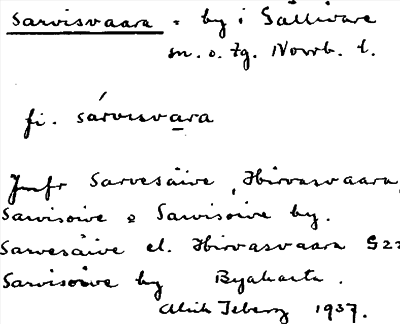 Sarvisvaara, by i Gällivare
sn. o. tg. Norrb. l.
fi. sárvisvara
Jmfr Sarvesåive, Hirvasvaara,
Sarvisoive o Sarvisoive by.
Sarvesåive el. Hirvasvaara G22
Sarvisoive by Byakarta.
1937.